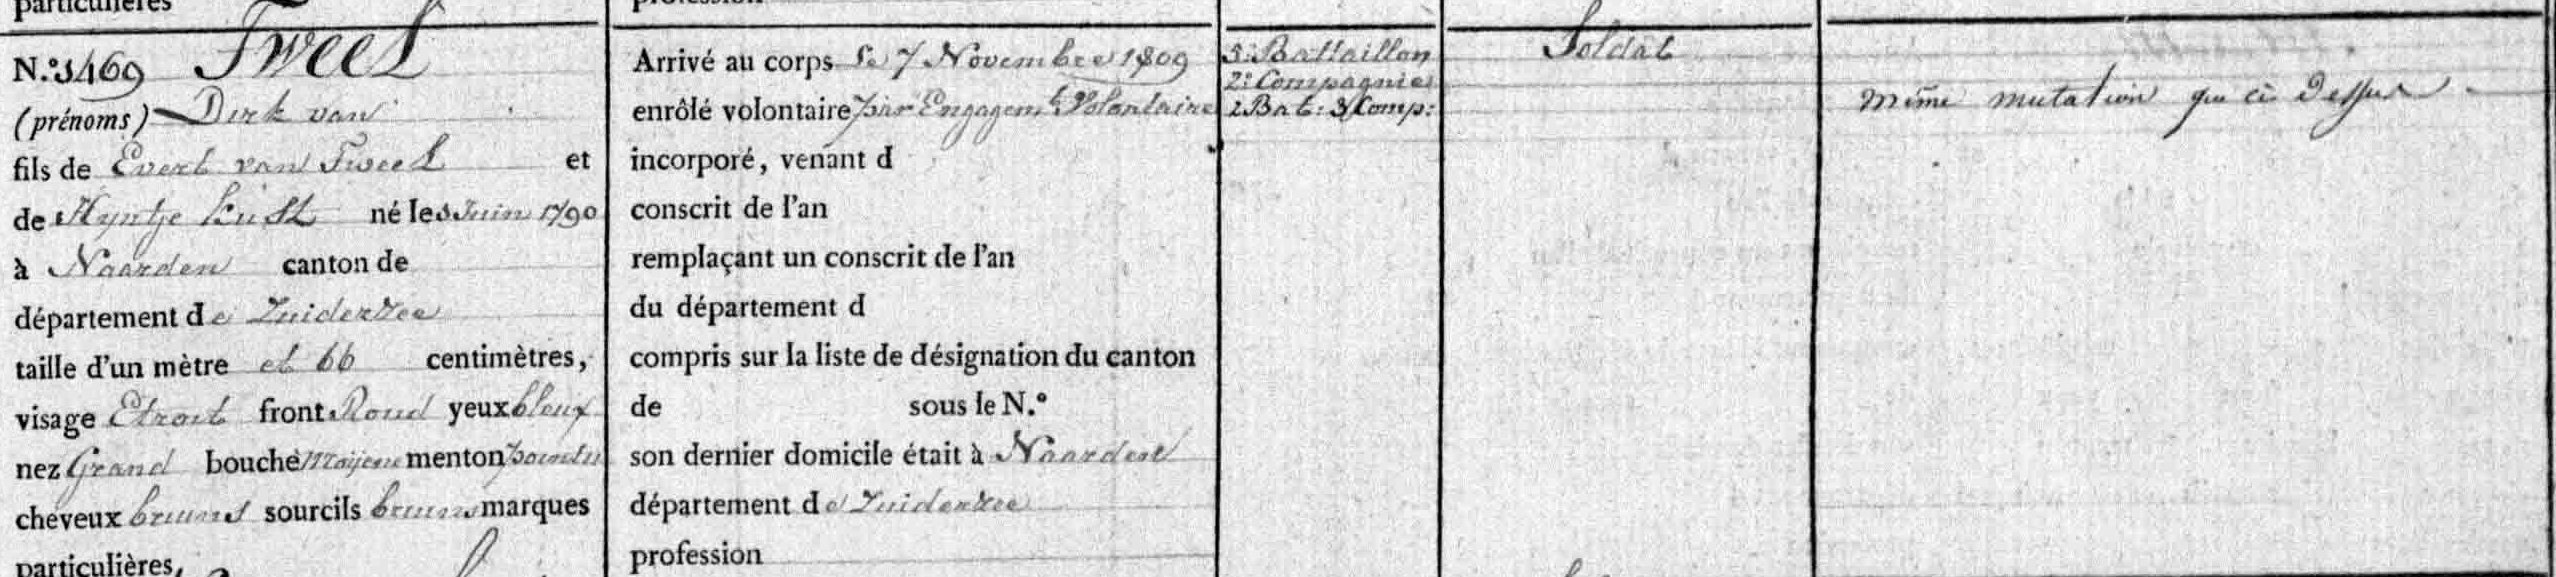 particulières
profession
N.º 3469 Tweel
(prénoms) Dirk van
fils de Evert van Tweel et
de Hyntje Lust né le 3 Juin 1790
à Naarden canton de
département de Zuiderzee
taille d'un mètre et 66 centimètres,
visage Etroit front Rond yeux bleux
nez Grand bouche Moijene menton pointu
cheveux bruns sourcils bruns marques
particulières,
Arrivé au corps Le 7 Novembre 1809
enrôlé volontaire par Engagemt Volontaire
incorporé, venant d
conscrit de l'an
remplaçant un conscrit de l'an
du département d
compris sur la liste de désignation du canton
de sous le N.º
son dernier domicile était à Naarden
département de Zuiderzee
profession
3e Bataillon
2e Compagnie
2 Bat: 3 Comp:
Soldat
même mutation que ci dessus